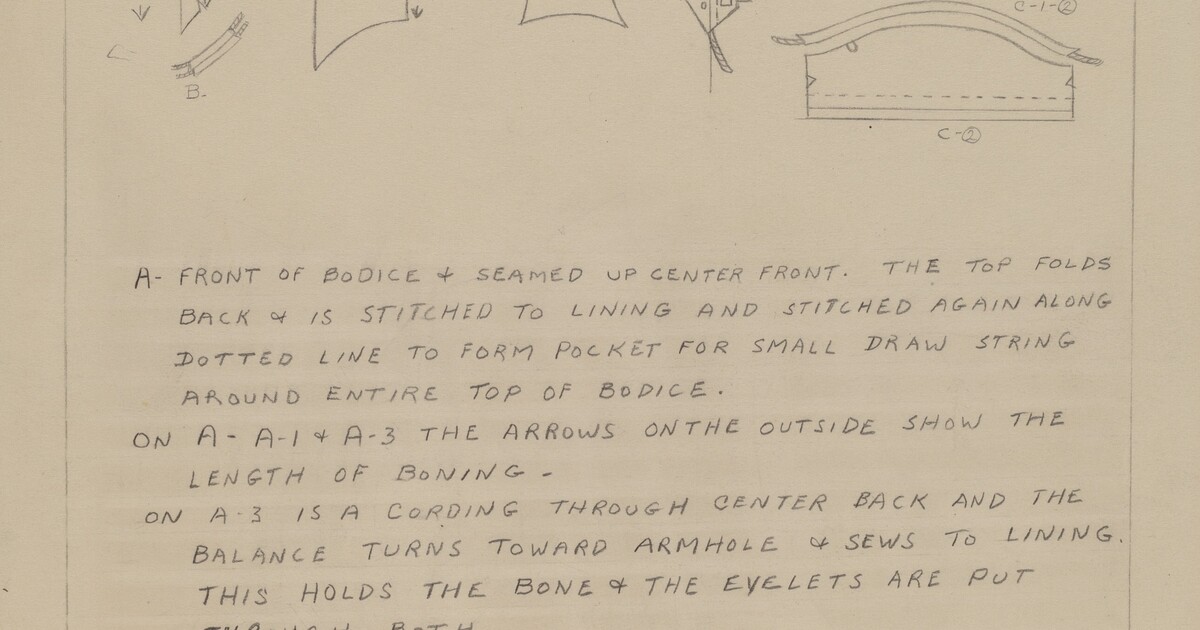 C-1-②
B-
C-②
A- FRONT OF BODICE & SEAMED UP CENTER FRONT. THE TOP FOLDS
BACK & IS STITCHED TO LINING AND STITCHED AGAIN ALONG
DOTTED LINE TO FORM POCKET FOR SMALL DRAW STRING
AROUND ENTIRE TOP OF BODICE.
ON A- A-1 & A-3 THE ARROWS ON THE OUTSIDE SHOW THE
LENGTH OF BONING -
ON A-3 IS A CORDING THROUGH CENTER BACK AND THE
BALANCE TURNS TOWARD ARMHOLE & SEWS TO LINING.
THIS HOLDS THE BONE & THE EYELETS ARE PUT
THROUGH BOTH